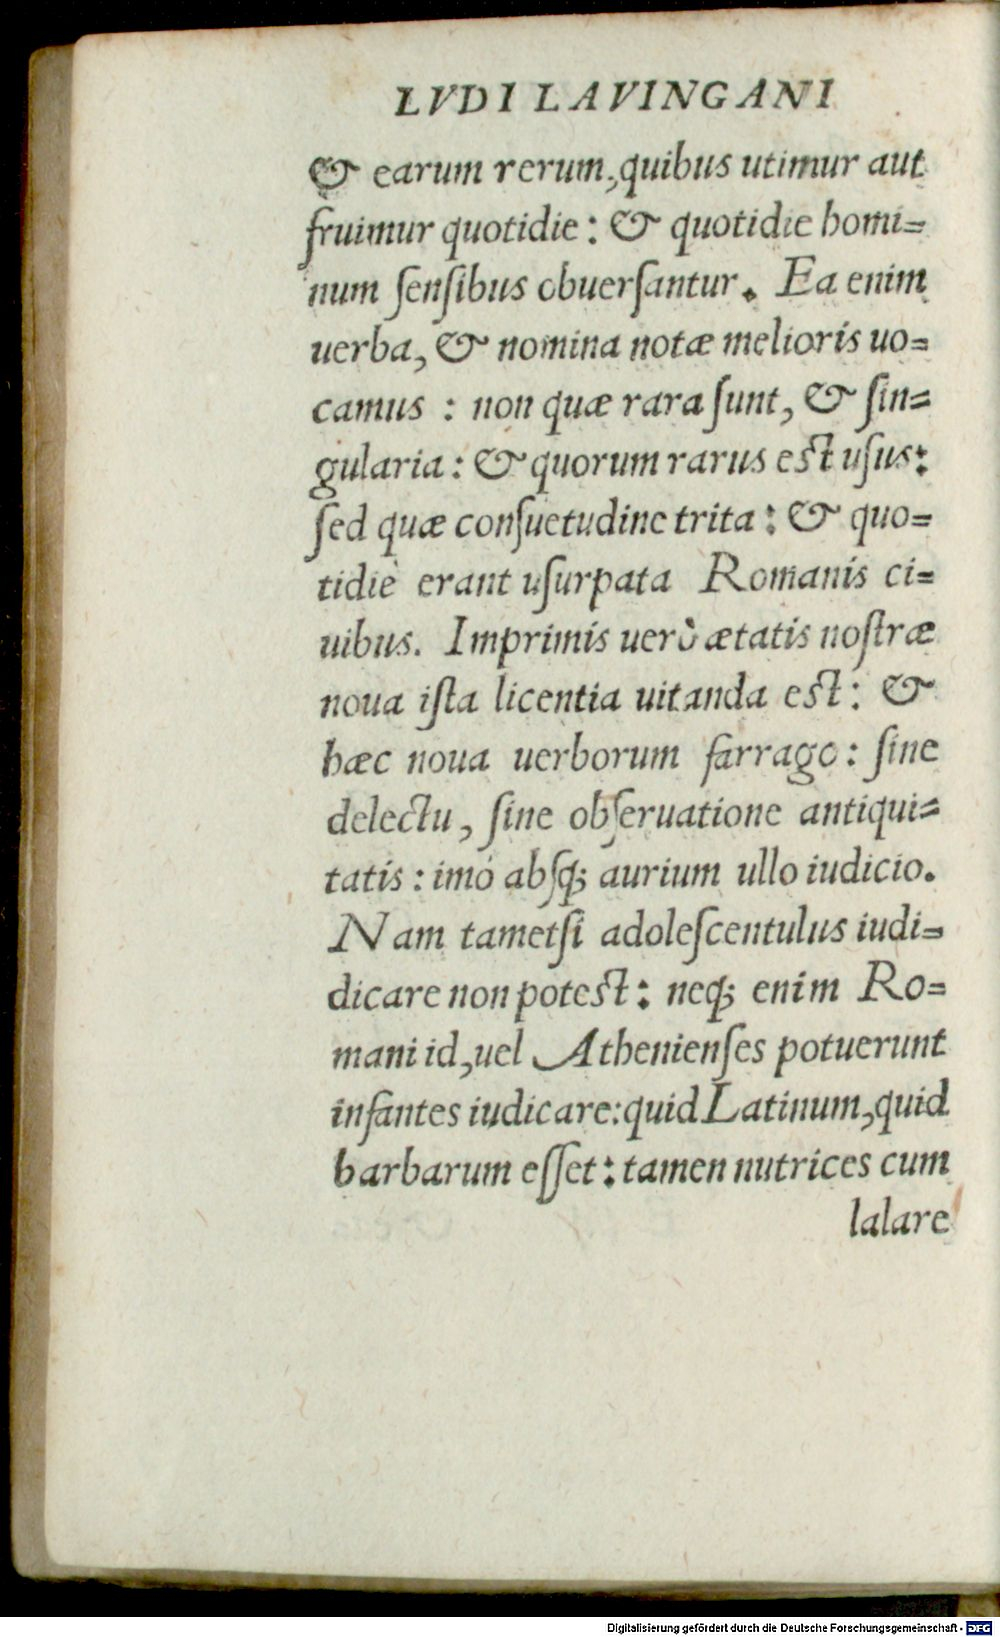 LVDI LAVINGANI
& earum rerum, quibus utimur aut
fruimur quotidie: & quotidie homi=
num ſenſibus obuerſantur. Ea enim
uerba, & nomina notæ melioris uo=
camus : non quæ rara ſunt, & ſin=
gularia: & quorum rarus eſt uſus:
ſed quæ conſuetudine trita: & quo=
tidiè erant uſurpata Romanis ci=
uibus. Imprimis uerò ætatis noſtræ
noua iſta licentia uitanda eſt: &
hæc noua uerborum farrago: ſine
delectu, ſine obſeruatione antiqui=
tatis: imó abſq; aurium ullo iudicio.
Nam tametſi adoleſcentulus iudi=
dicare non poteſt: neq; enim Ro=
mani id, uel Athenienſes potuerunt
infantes iudicare: quid Latinum, quid
barbarum eſſet: tamen nutrices cum
lalare
Digitalisierung gefördert durch die Deutsche Forschungsgemeinschaft - DFG